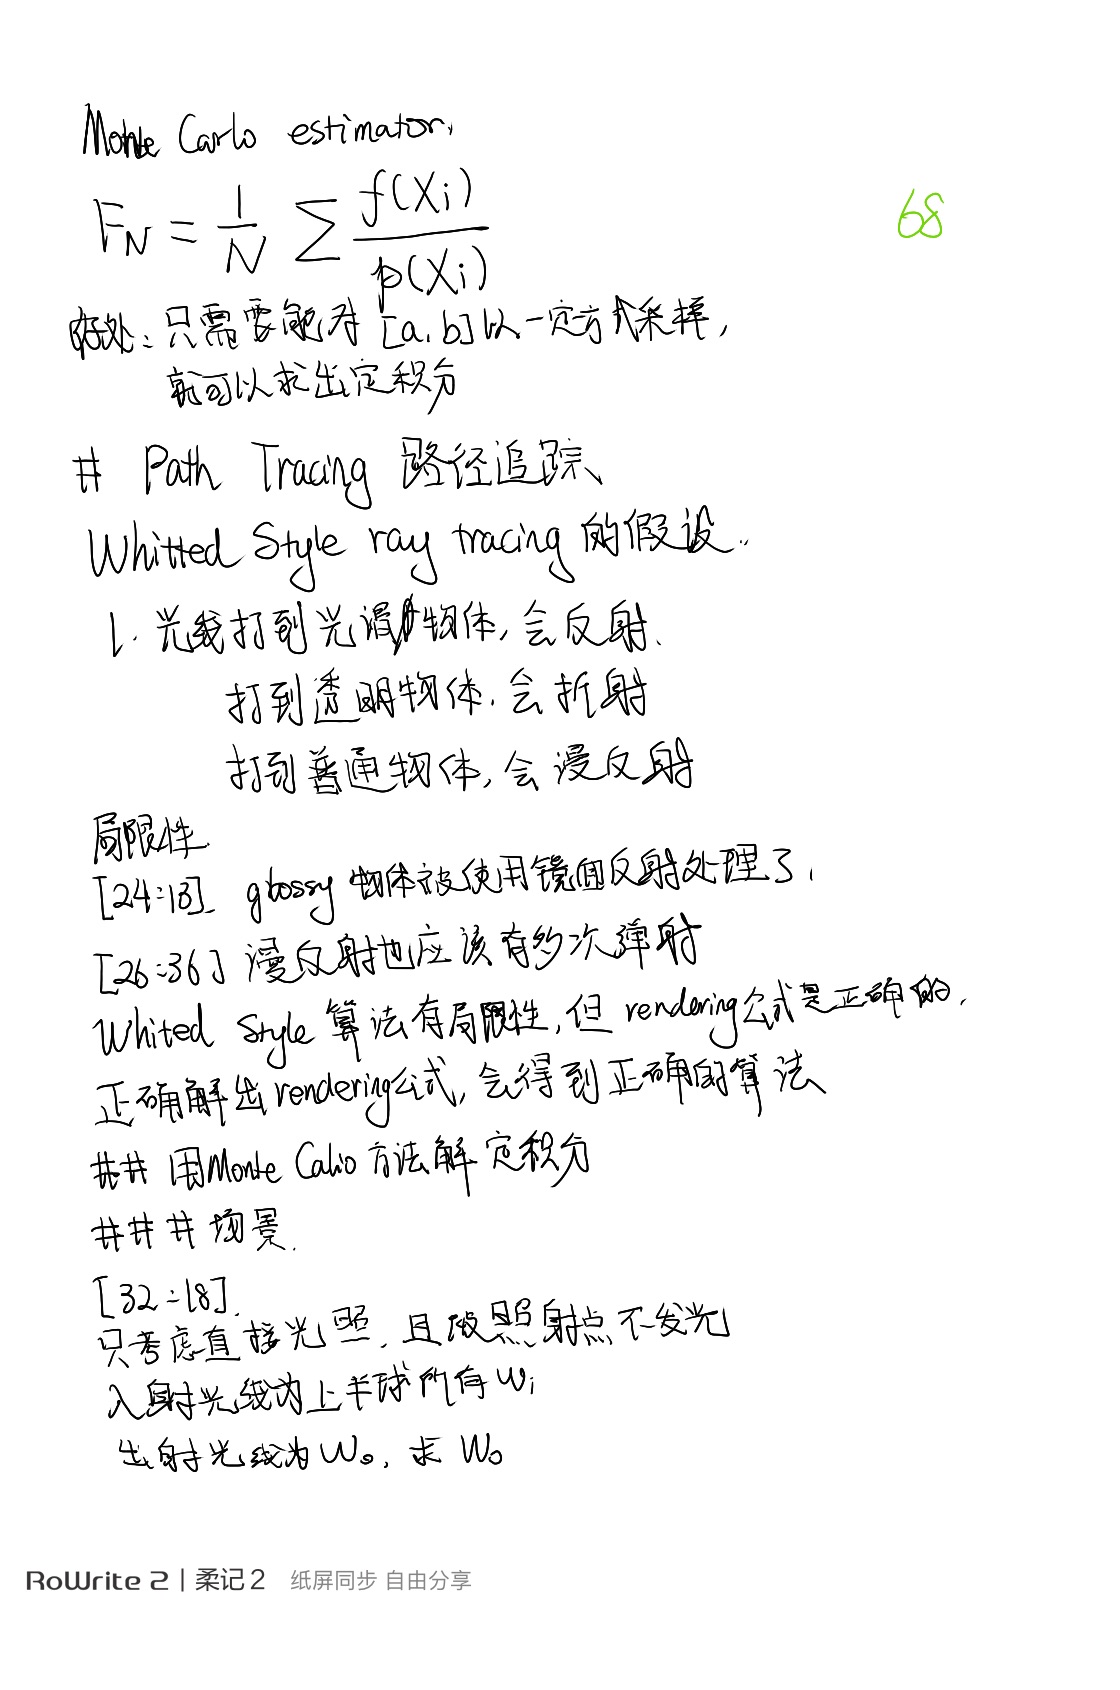 Monte Carlo estimator.
F_N = \frac{1}{N} \sum \frac{f(X_i)}{p(X_i)}
68
好处：只需要能对[a.b]以一定方式采样，
就可以求出定积分
# Path Tracing 路径追踪、
Whitted Style ray tracing 的假设..
1. 光线打到光滑物体，会反射.
打到透明物体.会折射
打到普通物体，会漫反射
局限性.
[24:13] glossy 物体被使用镜面反射处理了.
[26:36] 漫反射也应该有多次弹射
Whited Style 算法有局限性，但 rendering公式是正确的.
正确解出rendering公式，会得到正确的算法
## 用Monte Calio 方法解定积分
### 场景.
[32:18].
只考虑直接光照.且被照射点不发光
入射光线为上半球所有Wi
出射光线为Wo，求 Wo
RoWrite 2 | 柔记 2 纸屏同步 自由分享